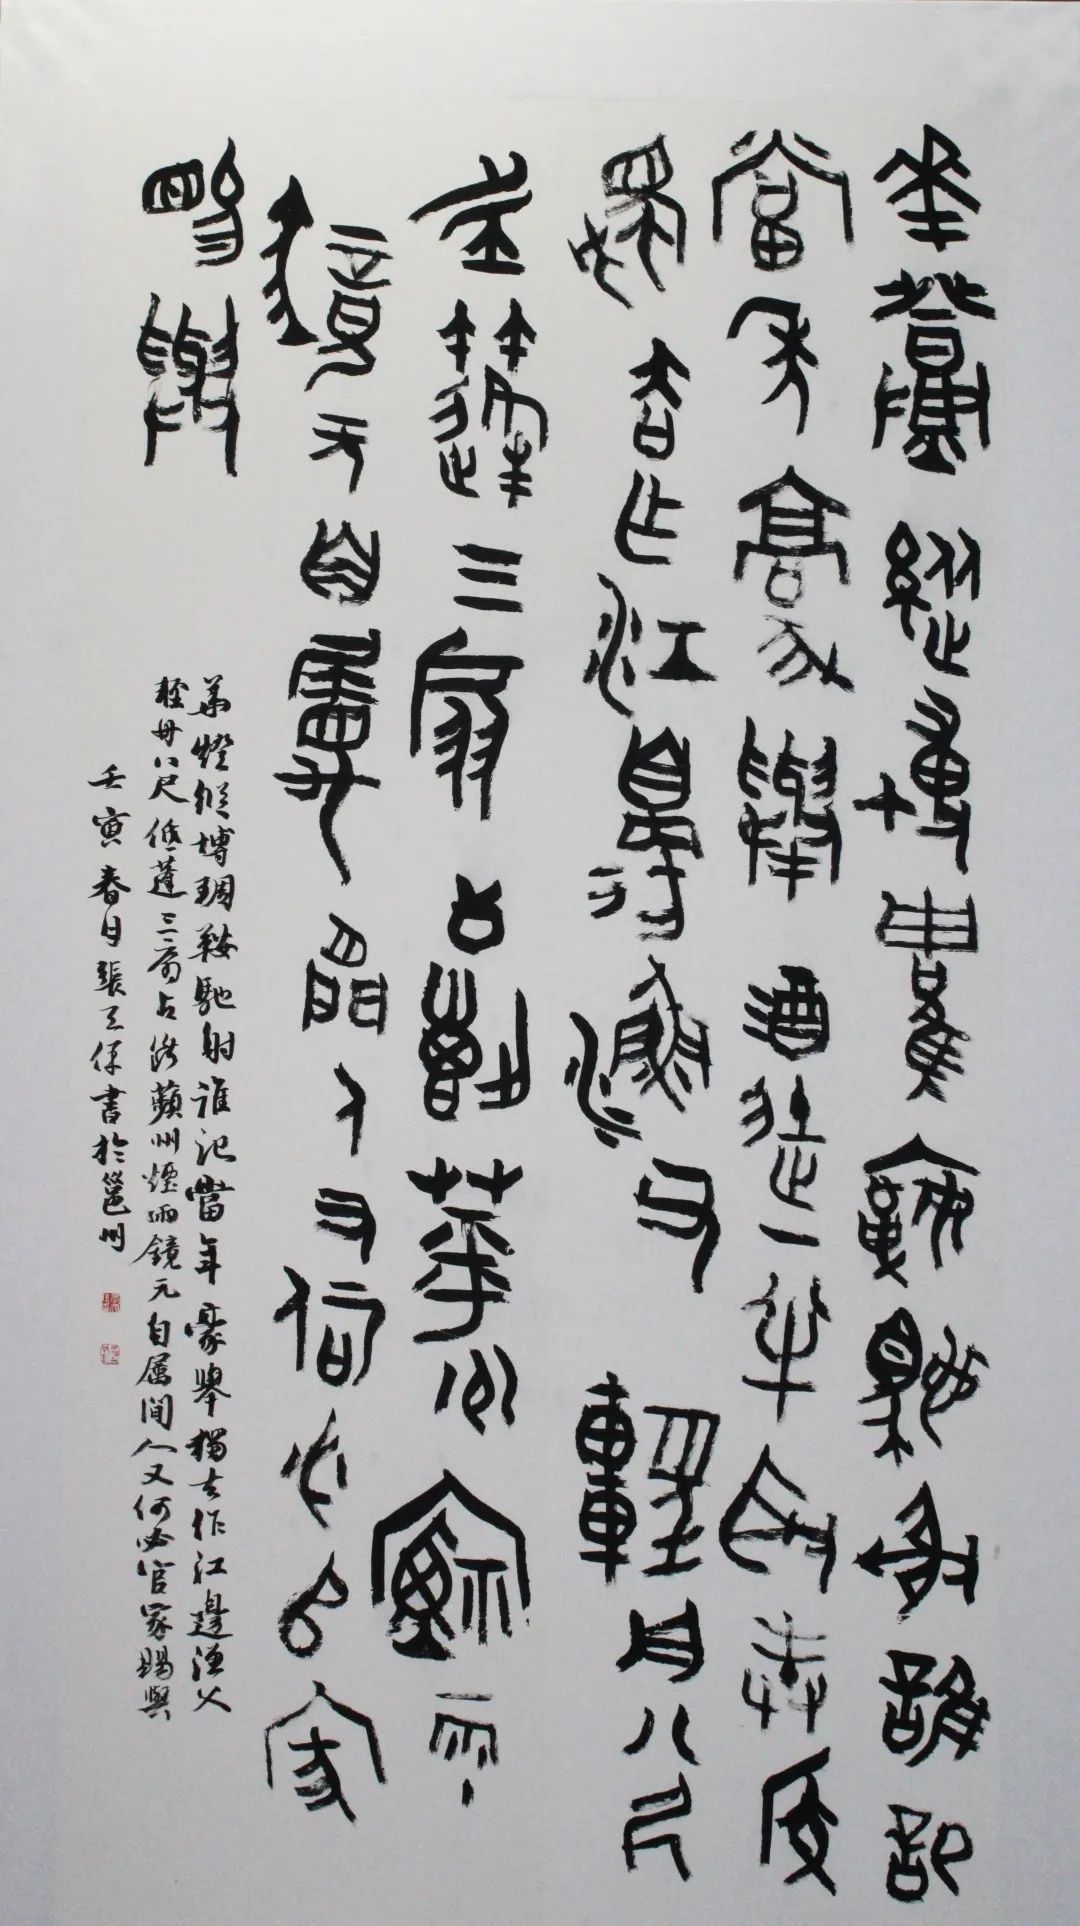 華燈縱博雕鞍馳射誰記
當年豪舉酒徒一半取封侯
獨去作江邊漁父輕舟八尺
低篷三扇占斷蘋州煙雨
鏡元自屬閒人又何必官家
賜與
華燈縱博琱鞍馳射誰記當年豪舉獨去作江邊漁父
輕舟八尺低蓬三扇占斷蘋州煙雨鏡元自屬閒人又何必官家賜與
壬寅春日張保書於邕州